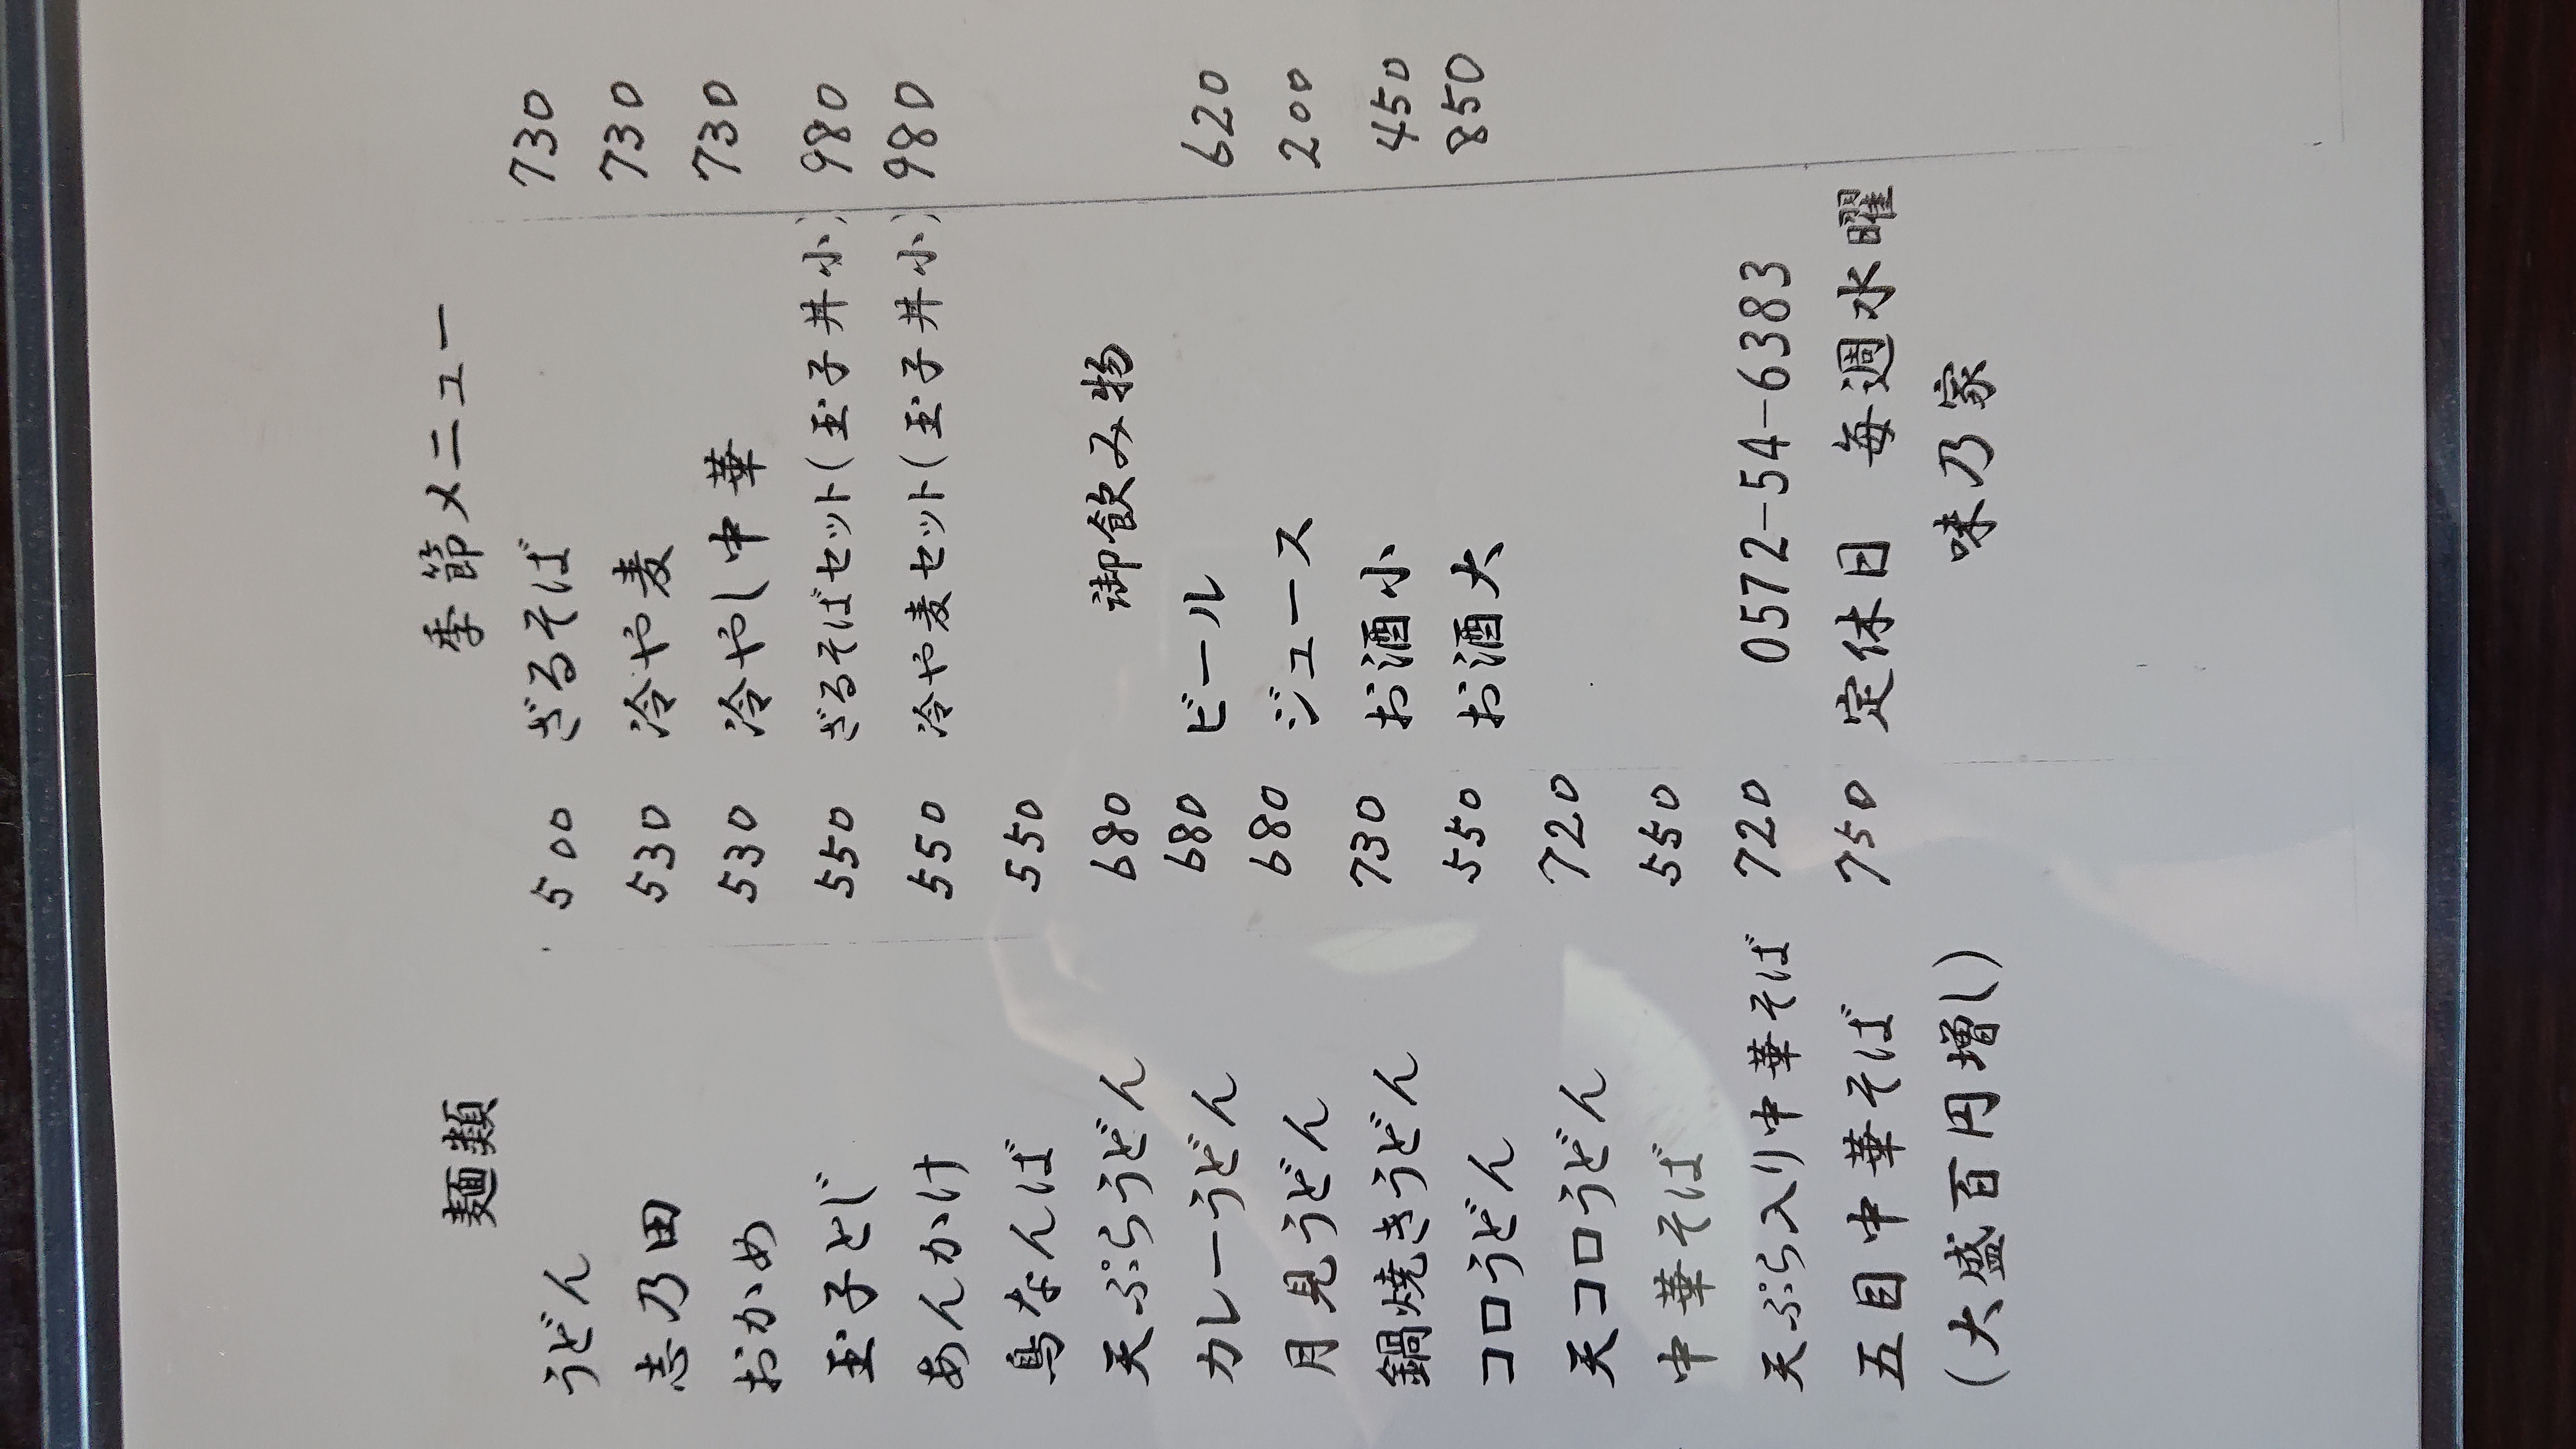 麺類
うどん 500
志乃田 530
おかめ 530
玉子とじ 550
あんかけ 550
鳥なんば 550
天ぷらうどん 680
カレーうどん 680
月見うどん 680
鍋焼きうどん 730
コロうどん 550
天コロうどん 720
中華そば 550
天ぷら入り中華そば 720
五目中華そば 750
(大盛百円増し)
季節メニュー
ざるそば 730
冷や麦 730
冷やし中華 730
ざるそばセット(玉子丼小) 980
冷や麦セット(玉子丼小) 980
御飲み物
ビール 620
ジュース 200
お酒小 450
お酒大 850
0572-54-6383
定休日 毎週水曜
味乃家